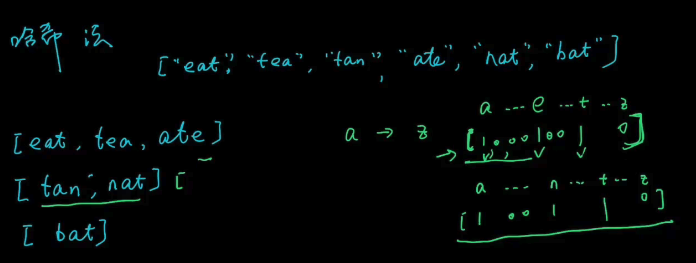 哈希法
["eat", "tea", "tan", "ate", "nat", "bat"]
[eat, tea, ate]
[tan, nat] [
[bat]
a → z
a ... e ... t .. z
→ [1 0 0 0 1 0 0 1 0]
a ... n ... t ... z
[1 0 0 1 1 0]